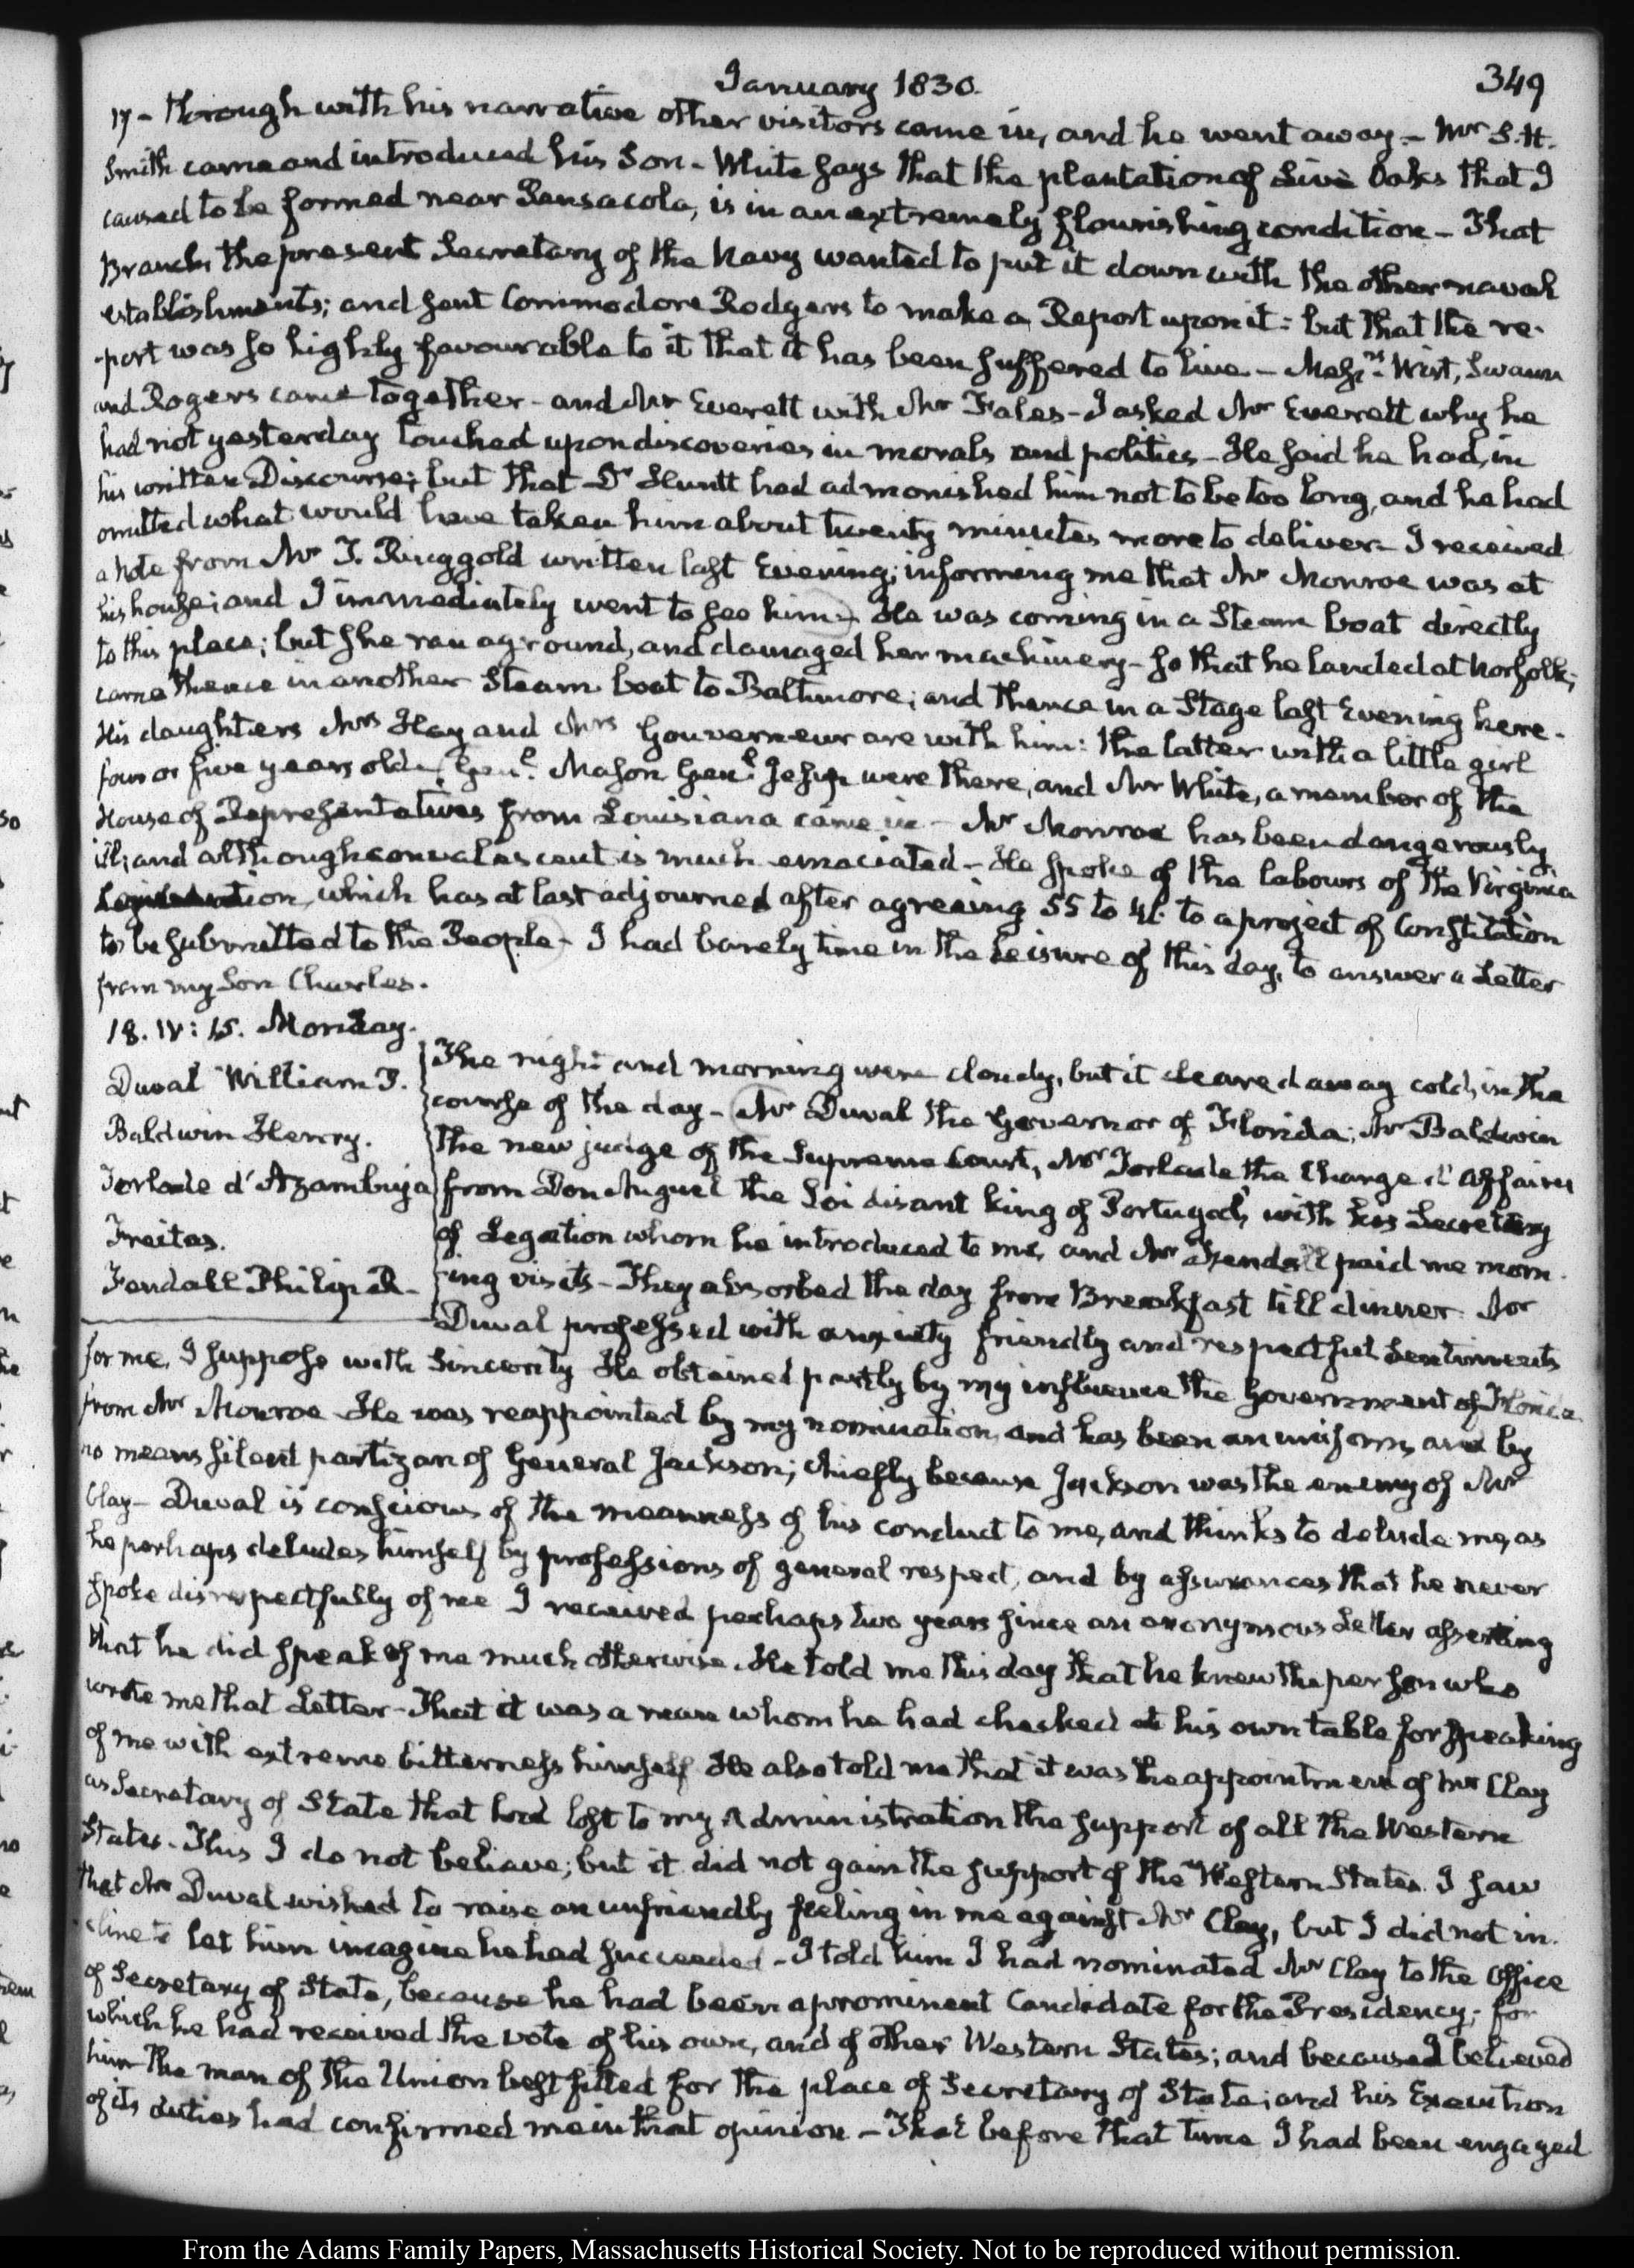 January 1830.
349
17 - through with his narrative other visitors came in, and he went away. - Mr S. H.
Smith came and introduced his Son - White says that the plantation of Live Oaks that I
caused to be formed near Pensacola, is in an extremely flourishing condition - That
Branch, the present Secretary of the Navy wanted to put it down with the other naval
establishments; and sent Commodore Rodgers to make a Report upon it: but that the re-
-port was so highly favourable to it that it has been suffered to live - Messrs. Wirt, Swann
and Rogers came together - and Mr Everett with Mr Fales - I asked Mr Everett why he
had not yesterday touched upon discoveries in morals and politics - He said he had, in
his written Discourse; but that Dr Huntt had admonished him not to be too long, and he had
omitted what would have taken him about twenty minutes more to deliver - I received
a Note from Mr T. Ringgold written last Evening; informing me that Mr Monroe was at
his house; and I immediately went to see him - He was coming in a Steam boat directly
to this place; but she ran aground, and damaged her machinery - so that he landed at Norfolk;
came thence in another Steam boat to Baltimore; and thence in a Stage last Evening here -
His daughters Mrs Hay and Mrs Gouverneur are with him: the latter with a little girl
four or five years old - Genl. Mason Genl. Jesup were there, and Mr White, a member of the
House of Representatives from Louisiana came in - Mr Monroe has been dangerously
ill; and although convalescent is much emaciated - He spoke of the labours of the Virginia
which has at last adjourned after agreeing 55 to 4 to a project of Constitution
to be submitted to the People - I had barely time in the Leisure of this day, to answer a Letter
from my Son Charles.
18. IV: 15. Monday.
Duval William P.
Baldwin Henry.
Torlade d'Azambuja
Freitas.
Fendall Philip R -
The night and morning were cloudy, but it cleared away cold, in the
course of the day - Mr Duval the Governor of Florida; Mr Baldwin
the new judge of the Supreme Court, Mr Torlade the Chargé d'Affaires
from Don Miguel the Soi disant king of Portugal, with his Secretary
of Legation whom he introduced to me, and Mr Fendall paid me morn-
ing visits - They absorbed the day from Breakfast till dinner Mr
Duval professed with anxiety friendly and respectful Sentiments
for me, I suppose with Sincerity He obtained partly by my influence the Government of Florida
from Mr Monroe He was reappointed by my nomination, and has been an uniform, and by
no means silent partizan of General Jackson; chiefly because Jackson was the enemy of Mr
Clay - Duval is conscious of the meanness of his conduct to me, and thinks to delude me, as
he perhaps deludes himself by professions of general respect, and by assurances that he never
spoke disrespectfully of me I received perhaps two years since an anonymous Letter asserting
that he did speak of me much otherwise. He told me this day that he knew the person who
wrote me that Letter - That it was a man whom he had checked at his own table for speaking
of me with extreme bitterness himself He also told me that it was the appointment of Mr Clay
as Secretary of State that had lost to my Administration the support of all the Western
States - This I do not believe; but it did not gain the support of the Western States. I saw
that Mr Duval wished to raise an unfriendly feeling in me against Mr Clay, but I did not in-
cline to let him imagine he had succeeded - I told him I had nominated Mr Clay to the Office
of Secretary of State, because he had been a prominent Candidate for the Presidency; for
which he had received the vote of his own, and of other Western States; and because I believed
him the man of the Union best fitted for the place of Secretary of State; and his Execution
of its duties had confirmed me in that opinion - That before that time I had been engaged
From the Adams Family Papers, Massachusetts Historical Society. Not to be reproduced without permission.